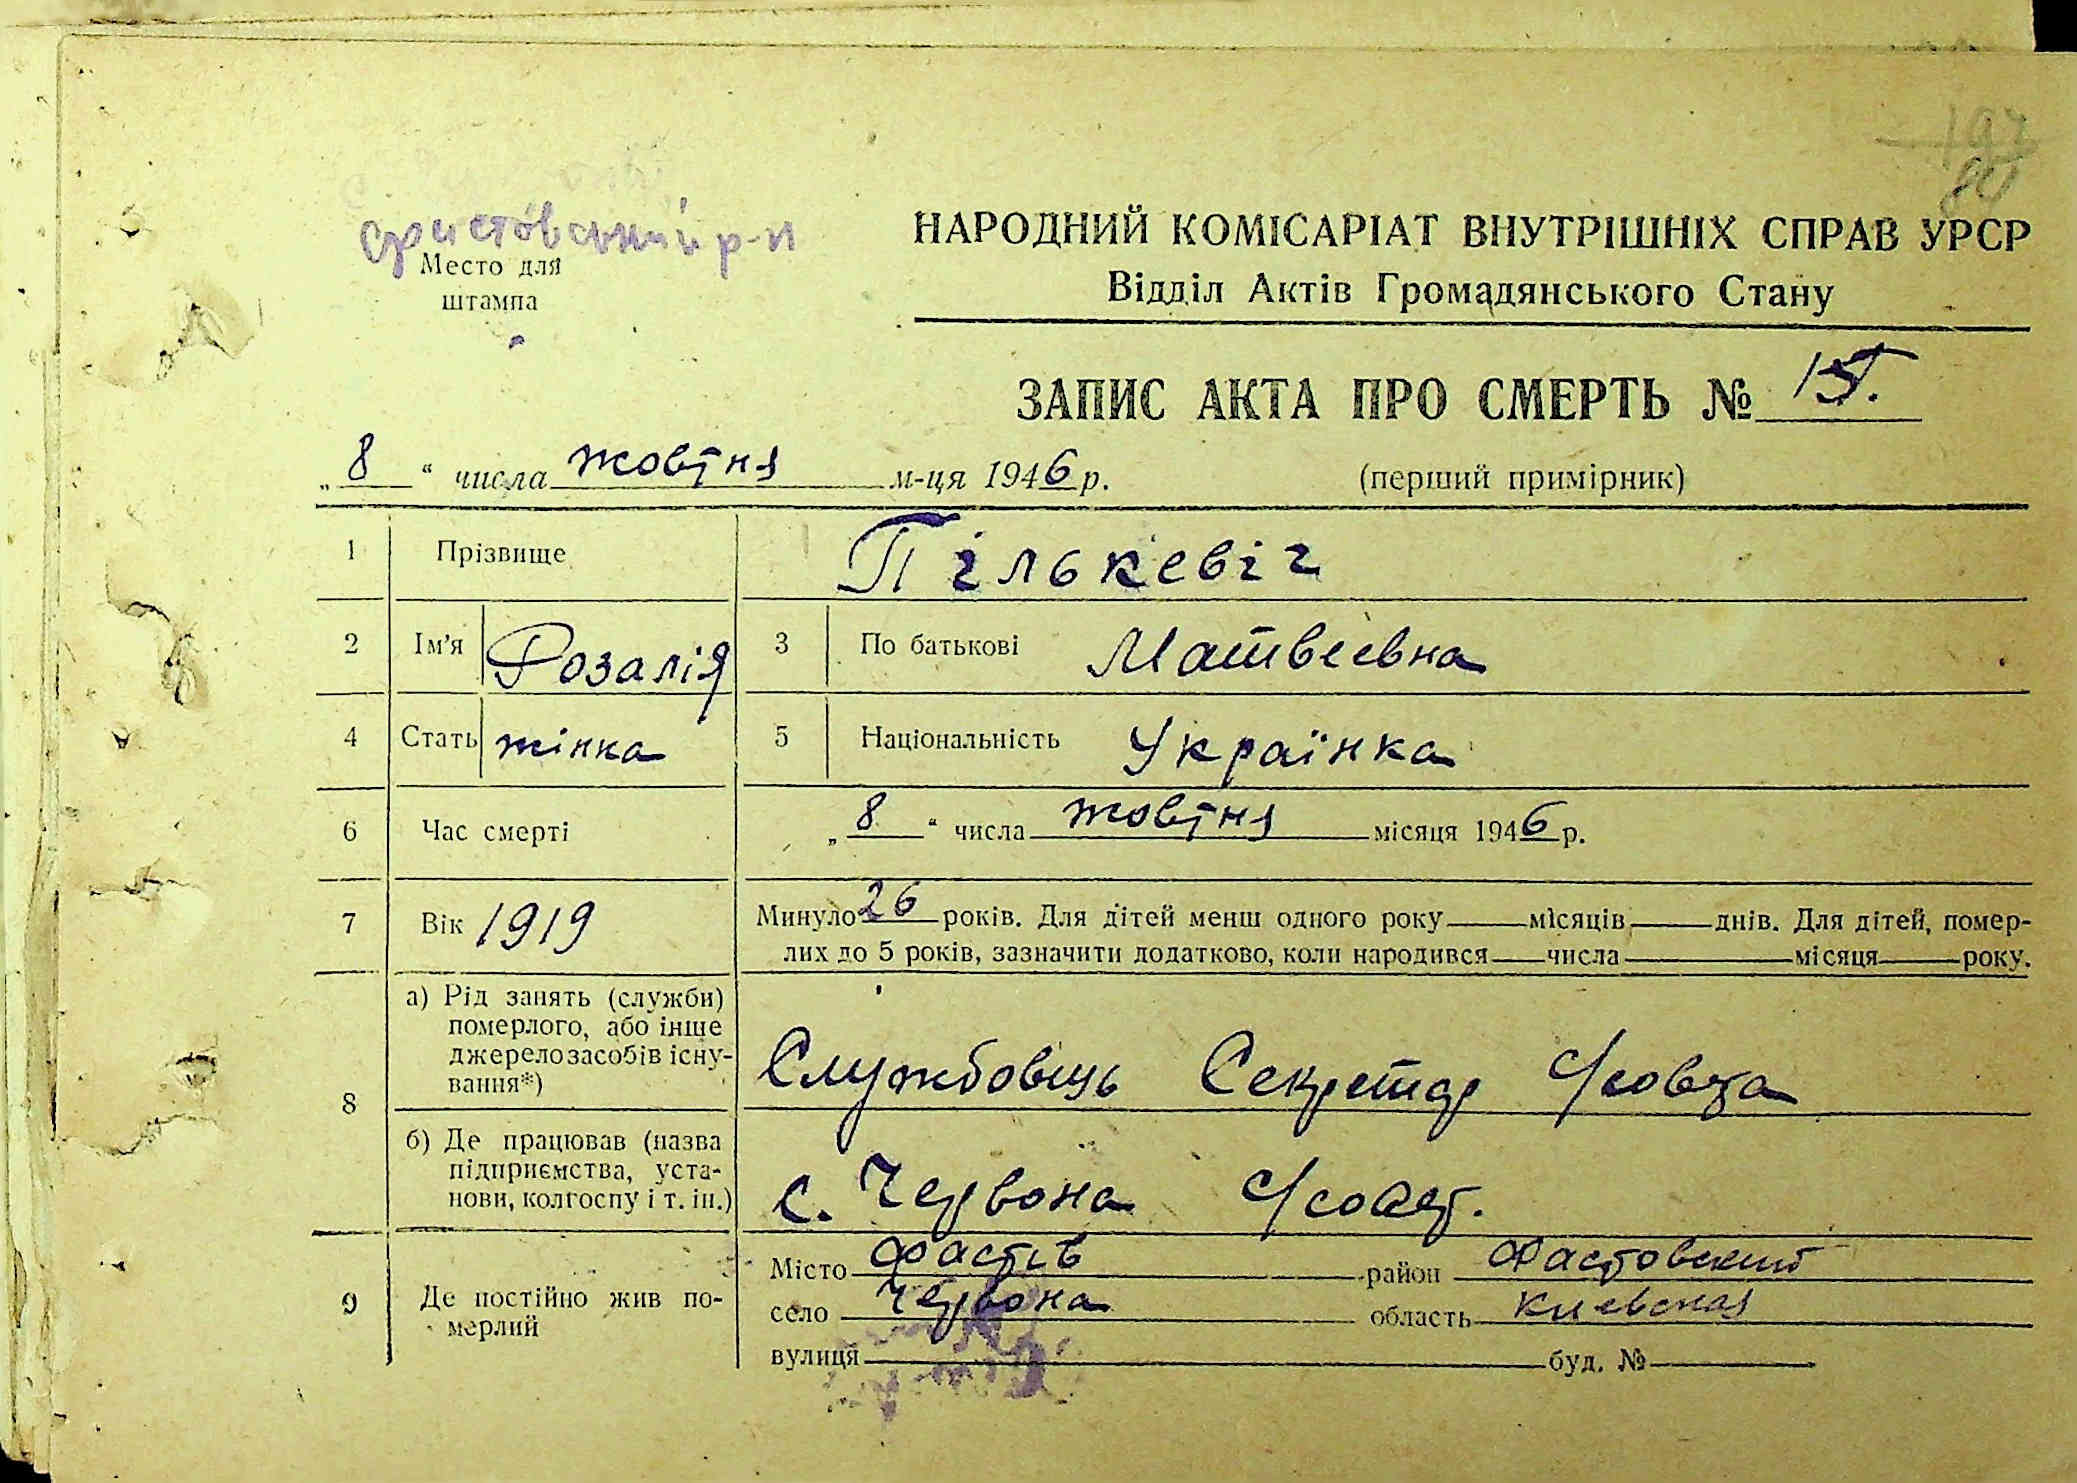 Фастовський р-н
Место для
штампа
НАРОДНИЙ КОМІСАРІАТ ВНУТРІШНІХ СПРАВ УРСР
Відділ Актів Громадянського Стану
ЗАПИС АКТА ПРО СМЕРТЬ №
„8“ числа жовтня м-ця 1946 р. (перший примірник)
1 Прізвище Пількевіч
2 Ім'я Розалія 3 По батькові Матвеевна
4 Стать жінка 5 Національність Українка
6 Час смерті „8“ числа жовтня місяця 1946 р.
7 Вік 1919 Минуло 26 років. Для дітей менш одного року місяців днів. Для дітей, помер-
лих до 5 років, зазначити додатково, коли народився числа місяця року.
8 а) Рід занять (служби)
померлого, або інше
джерело засобів існу-
вання*)
Службовець Секретар с/совета
б) Де працював (назва
підприємства, уста-
нови, колгоспу і т. ін.)
с. Червона с/совет.
9 Де постійно жив по-
мерлий
Місто Фастів район Фастовский
село Червона область Киевская
вулиця буд. №